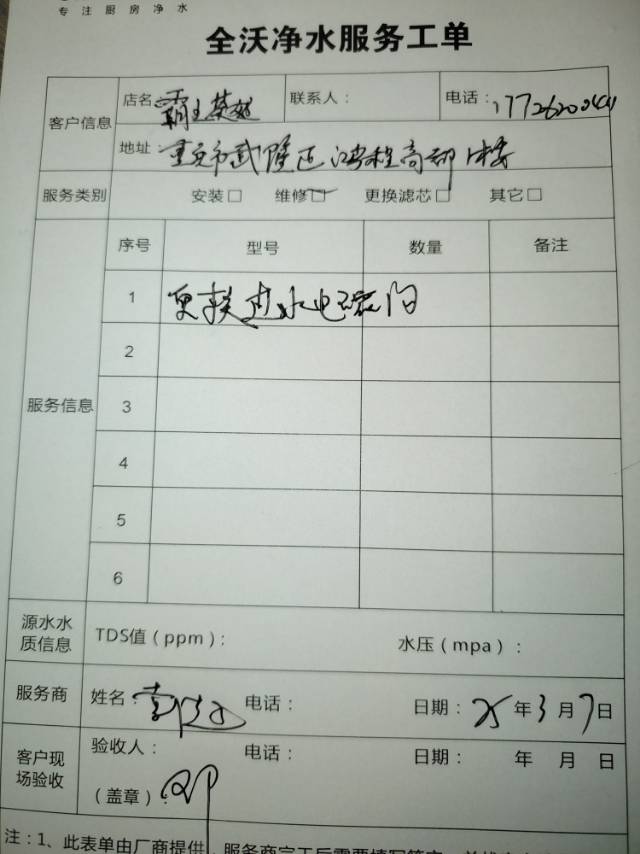 专注厨房净水
全沃净水服务工单
客户信息
店名 霸王茶姬 联系人： 电话：
地址 重庆市武隆区
服务类别 安装□ 维修□ 更换滤芯□ 其它□
服务信息
序号 型号 数量 备注
1 更换进水电磁阀
2
3
4
5
6
源水水质信息 TDS值（ppm）： 水压（mpa）：
服务商 姓名： 电话： 日期：25年3月7日
客户现场验收 验收人： 电话： 日期： 年 月 日
（盖章）： 邓
注：1、此表单由厂商提供，服务商完工后需要填写